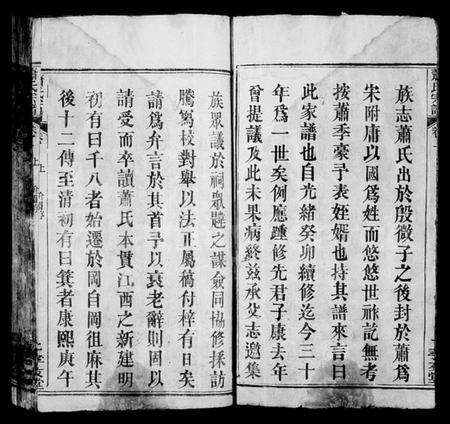 族志蕭氏出於殷微子之後封於蕭爲
宋附庸以國爲姓而悠悠世祀記無考
按蕭季豪予表姪婿也持其譜來言曰
此家譜也自光緒癸卯續修迄今三十
年爲一世矣例應踵修先君子康去年
曾提議及此未果病終兹承父志邀集
族眾議於祠眾韙之謀僉同協修採訪
騰寫校對舉以法正屬稿付梓有日矣
請爲弁言於其首予以衰老辭則固以
請受而卒讀蕭氏本貫江西之新建明
初有曰千八者始遷於岡自岡徂麻其
後十二傳至清初有曰箕者康熙庚午